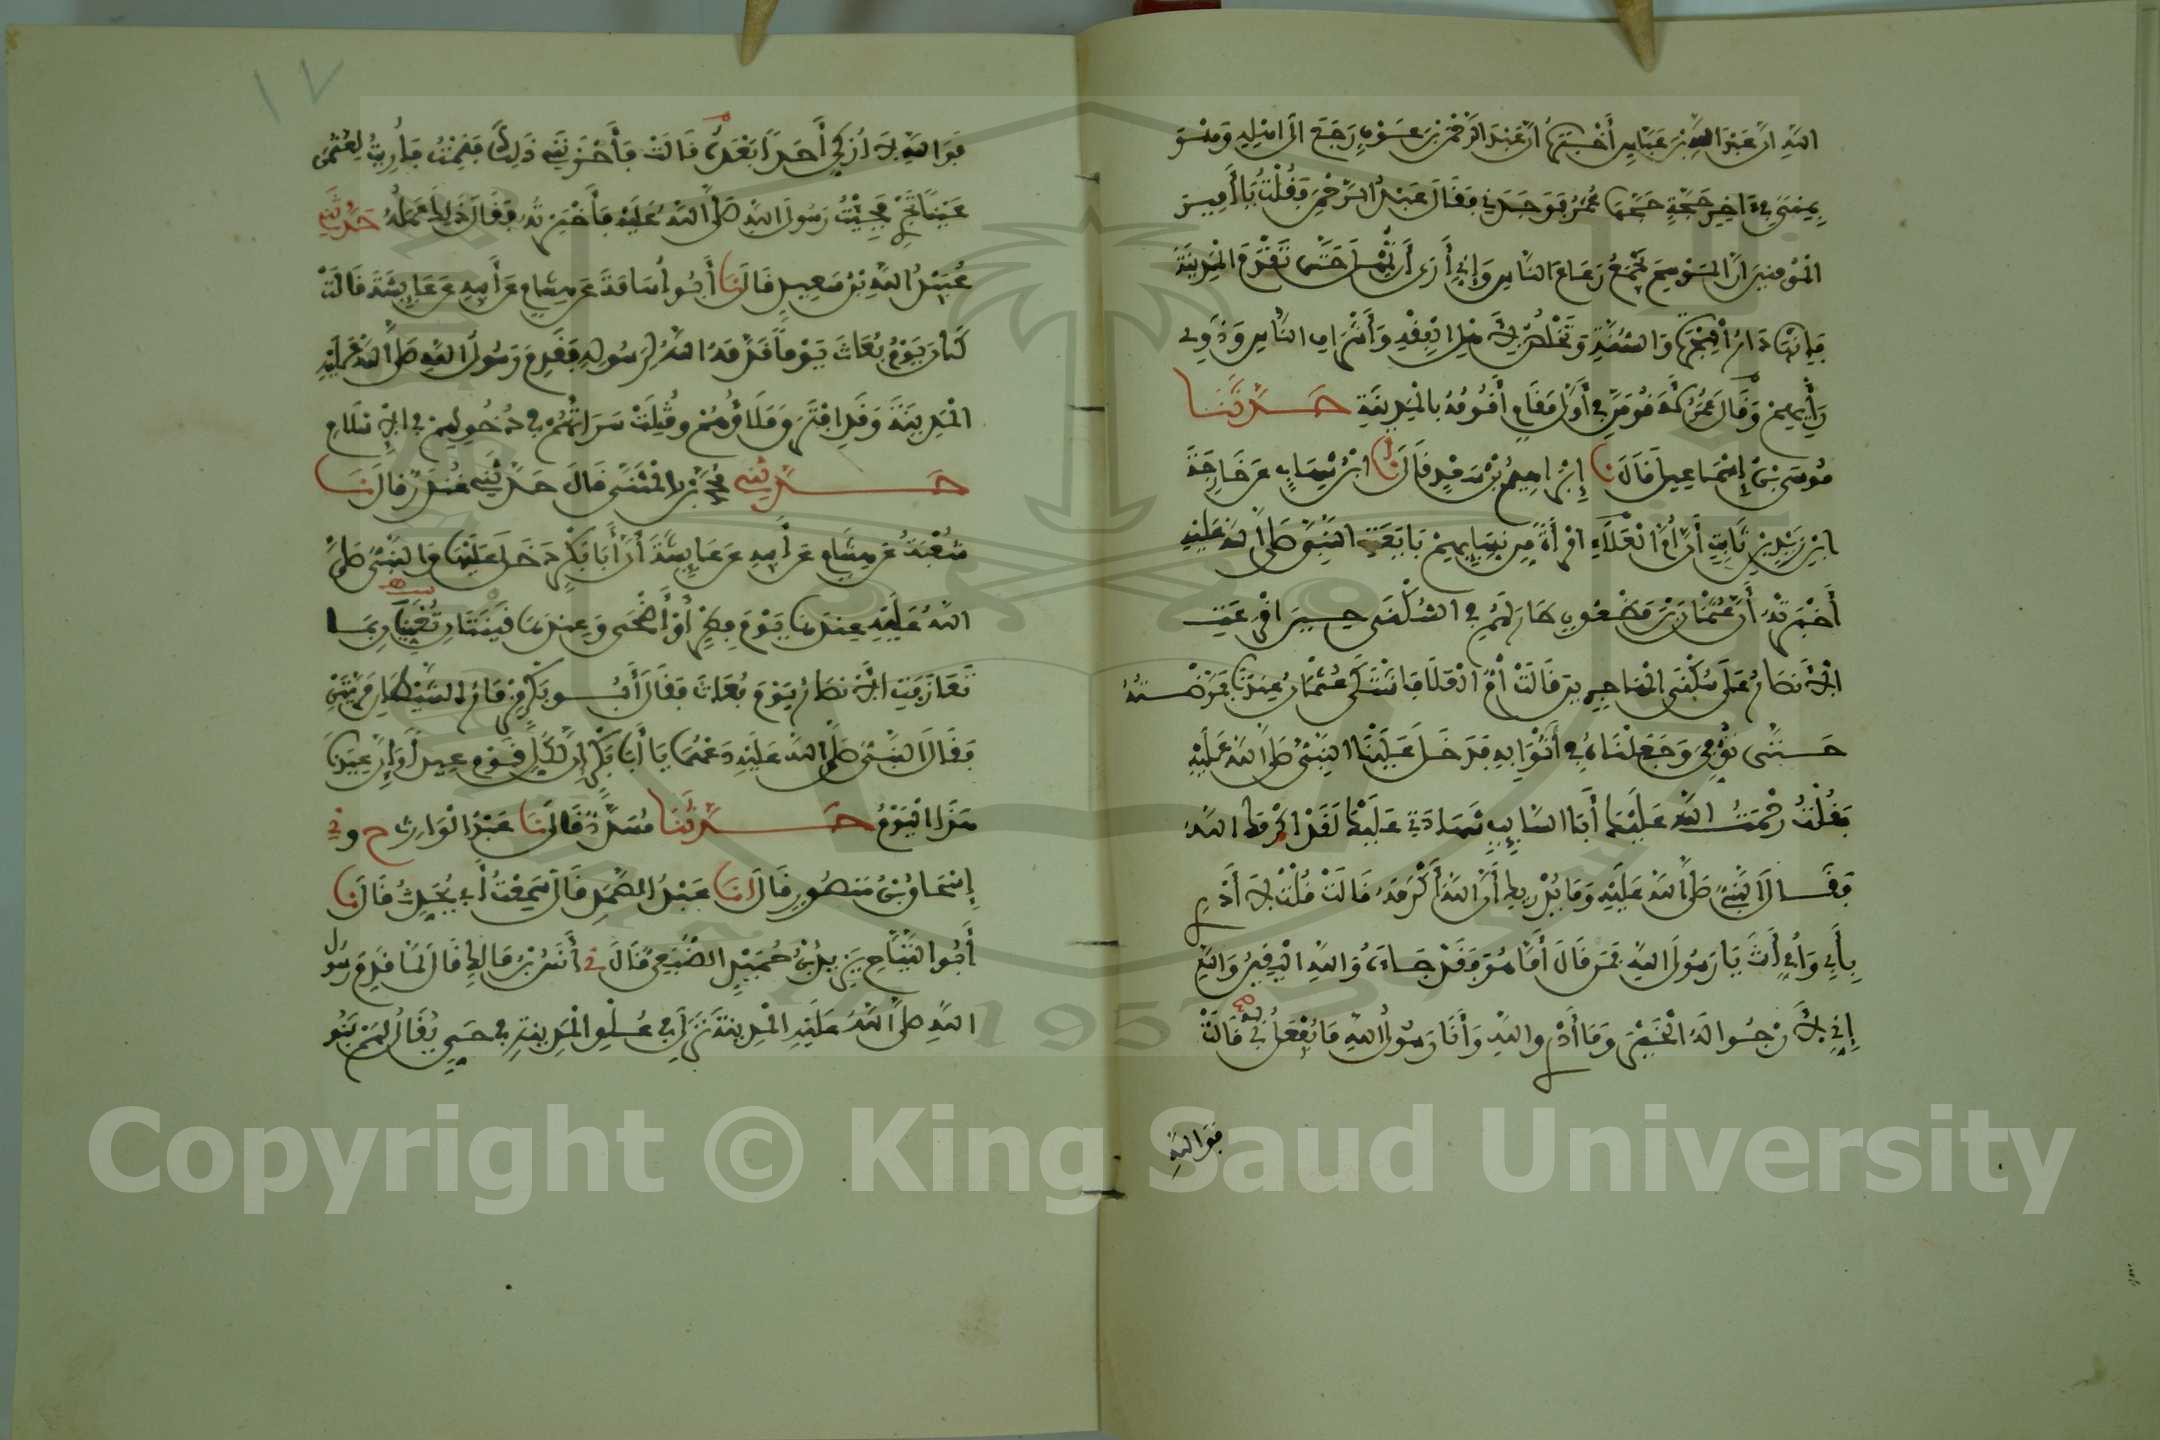 اللهِ انَّ عَبْدَ اللهِ بْنَ عَبَّاسٍ أَخْبَرَهُ أنَّ عَبْدَ الرَّحْمنِ بْنَ عَوْفٍ رَجَعَ الَى اهْلِهِ وَهْوَ
بِمِنىً فِي ءَاخِرِ حَجَّةٍ حَجَّهَا عُمَرُ فَوَجَدَنِي فَقَالَ عَبْدُ الرَّحْمنِ فَقُلْتُ يَا أَمِيرَ
الْمُومِنِينَ انَّ الْمَوْسِمَ يَجْمَعُ رَعَاعَ النَّاسِ وَإِنِّي أَرَى أَنْ تُمْهِلَ حَتَّى تَقْدَمَ الْمَدِينَةَ
فَإِنَّهَا دَارُ الْهِجْرَةِ وَالسُّنَّةِ وَتَخْلُصَ لِأَهْلِ الْفِقْهِ وَأَشْرَافِ النَّاسِ وَذَوِي
رَأْيِهِمْ وَقَالَ عُمَرُ لَأَقُومَنَّ فِي أَوَّلِ مَقَامٍ أَقُومُهُ بِالْمَدِينَةِ حَدَّثَنَا
مُوسَى بْنُ إِسْمَاعِيلَ قَالَ نَا إِبْرَاهِيمُ بْنُ سَعْدٍ قَالَ نَا ابْنُ شِهَابٍ عَنْ خَارِجَةَ
ابْنِ زَيْدِ بْنِ ثَابِتٍ أَنَّ أُمَّ الْعَلَاءِ امْرَأَةً مِن نِسَايِهِمْ بَايَعَتِ النَّبِيَّ صَلَّى اللهُ عَلَيْهِ
أَخْبَرَتْهُ أَنَّ عُثْمَانَ بْنَ مَظْعُونٍ طَارَ لَهُمْ فِي السُّكْنَى حِينَ اقْرَعَتِ
الْأَنْصَارُ عَلَى سُكْنَى الْمُهَاجِرِينَ قَالَتْ أُمُّ الْعَلَاءِ فَاشْتَكَى عُثْمَانُ عِنْدَنَا فَمَرَّضْتُهُ
حَتَّى تُوُفِّيَ وَجَعَلْنَاهُ فِي أَثْوَابِهِ فَدَخَلَ عَلَيْنَا النَّبِيُّ صَلَّى اللهُ عَلَيْهِ
فَقُلْتُ رَحْمَتُ اللهِ عَلَيْكَ أَبَا السَّايِبِ شَهَادَتِي عَلَيْكَ لَقَدْ اكْرَمَكَ اللهُ
فَقَالَ النَّبِيُّ صَلَّى اللهُ عَلَيْهِ وَمَا يُدْرِيكِ أَنَّ اللهَ أَكْرَمَهُ قَالَتْ قُلْتُ لَا أَدْرِي
بِأَبِي وَأُمِّي أَنْتَ يَا رَسُولَ اللهِ فَمَنْ قَالَ أَمَّا هُوَ فَقَدْ جَاءَهُ وَاللهِ الْيَقِينُ وَاللهِ
إِنِّي لَأَرْجُوا لَهُ الْخَيْرَ وَمَا أَدْرِي وَاللهِ وَأَنَا رَسُولُ اللهِ مَا يُفْعَلُ بِي قَالَتْ
فَوَاللهِ
١٧
فَوَاللهِ لَا أُزَكِّي أَحَداً بَعْدَهُ قَالَتْ فَأَحْزَنَنِي ذَلِكَ فَنِمْتُ فَأُرِيتُ لِعُثْمنَ
عَيْناً تَجْرِي فَجِيْتُ رَسُولَ اللهِ صَلَّى اللهُ عَلَيْهِ فَأَخْبَرْتُهُ فَقَالَ ذَلِكِ عَمَلُهُ حَدَّثَنِي
عُبَيْدُ اللهِ بْنُ سَعِيدٍ قَالَ نَا أَبُو أُسَامَةَ عَن هِشَامٍ عَن أَبِيهِ عَن عَايِشَةَ قَالَتْ
كَانَ يَوْمُ بُعَاثَ يَوْماً قَدَّمَهُ اللهُ لِرَسُولِهِ فَقَدِمَ رَسُولُ اللهِ صَلَّى اللهُ عَلَيْهِ
الْمَدِينَةَ وَقَدِ افْتَرَقَ مَلَأُهُمْ وقُتِلَتْ سَرَاتُهُمْ فِي دُخُولِهِمْ فِي الْإِسْلَامِ
حَدَّثَنِي مُحَمَّدُ بْنُ الْمُثَنَّى قَالَ حَدَّثَنِي غُنْدَرٌ قَالَ نَا
شُعْبَةُ عَن هِشَامٍ عَن أَبِيهِ عَن عَايِشَةَ أَنَّ أَبَا بَكْرٍ دَخَلَ عَلَيْهَا وَالنَّبِيُّ صَلَّى
اللهُ عَلَيْهِ عِنْدَهَا يَوْمَ فِطْرٍ أَوْ أَضْحَى وَعِنْدَهَا قَيْنَتَانِ تُغَنِّيَانِ بِمَا
تَعَازَفَتِ الْأَنْصَارُ يَوْمَ بُعَاثَ فَقَالَ أَبُو بَكْرٍ مِزْمَارُ الشَّيْطَانِ مَرَّتَيْنِ
فَقَالَ النَّبِيُّ صَلَّى اللهُ عَلَيْهِ دَعْهُمَا يَا أَبَا بَكْرٍ إِنَّ لِكُلِّ قَوْمٍ عِيداً وَإِنَّ عِيدَنَا
هَذَا الْيَوْمُ حَدَّثَنَا مُسَدَّدٌ قَالَ نَا عَبْدُ الْوَارِثِ ح وني
إِسْحَاقُ بْنُ مَنْصُورٍ قَالَ انَا عَبْدُ الصَّمَدِ قَالَ سَمِعْتُ أَبِي يُحَدِّثُ قَالَ نَا
أَبُو التَّيَّاحِ يَزِيدُ بْنُ حُمَيْدٍ الضُّبَعِيُّ قَالَ ني أَنَسُ بْنُ مَالِكٍ قَالَ لَمَّا قَدِمَ رَسُولُ
اللهِ صَلَّى اللهُ عَلَيْهِ الْمَدِينَةَ نَزَلَ فِي عُلْوِ الْمَدِينَةِ فِي حَيٍّ يُقَالُ لَهُمْ بَنُو
Copyright © King Saud University
1957